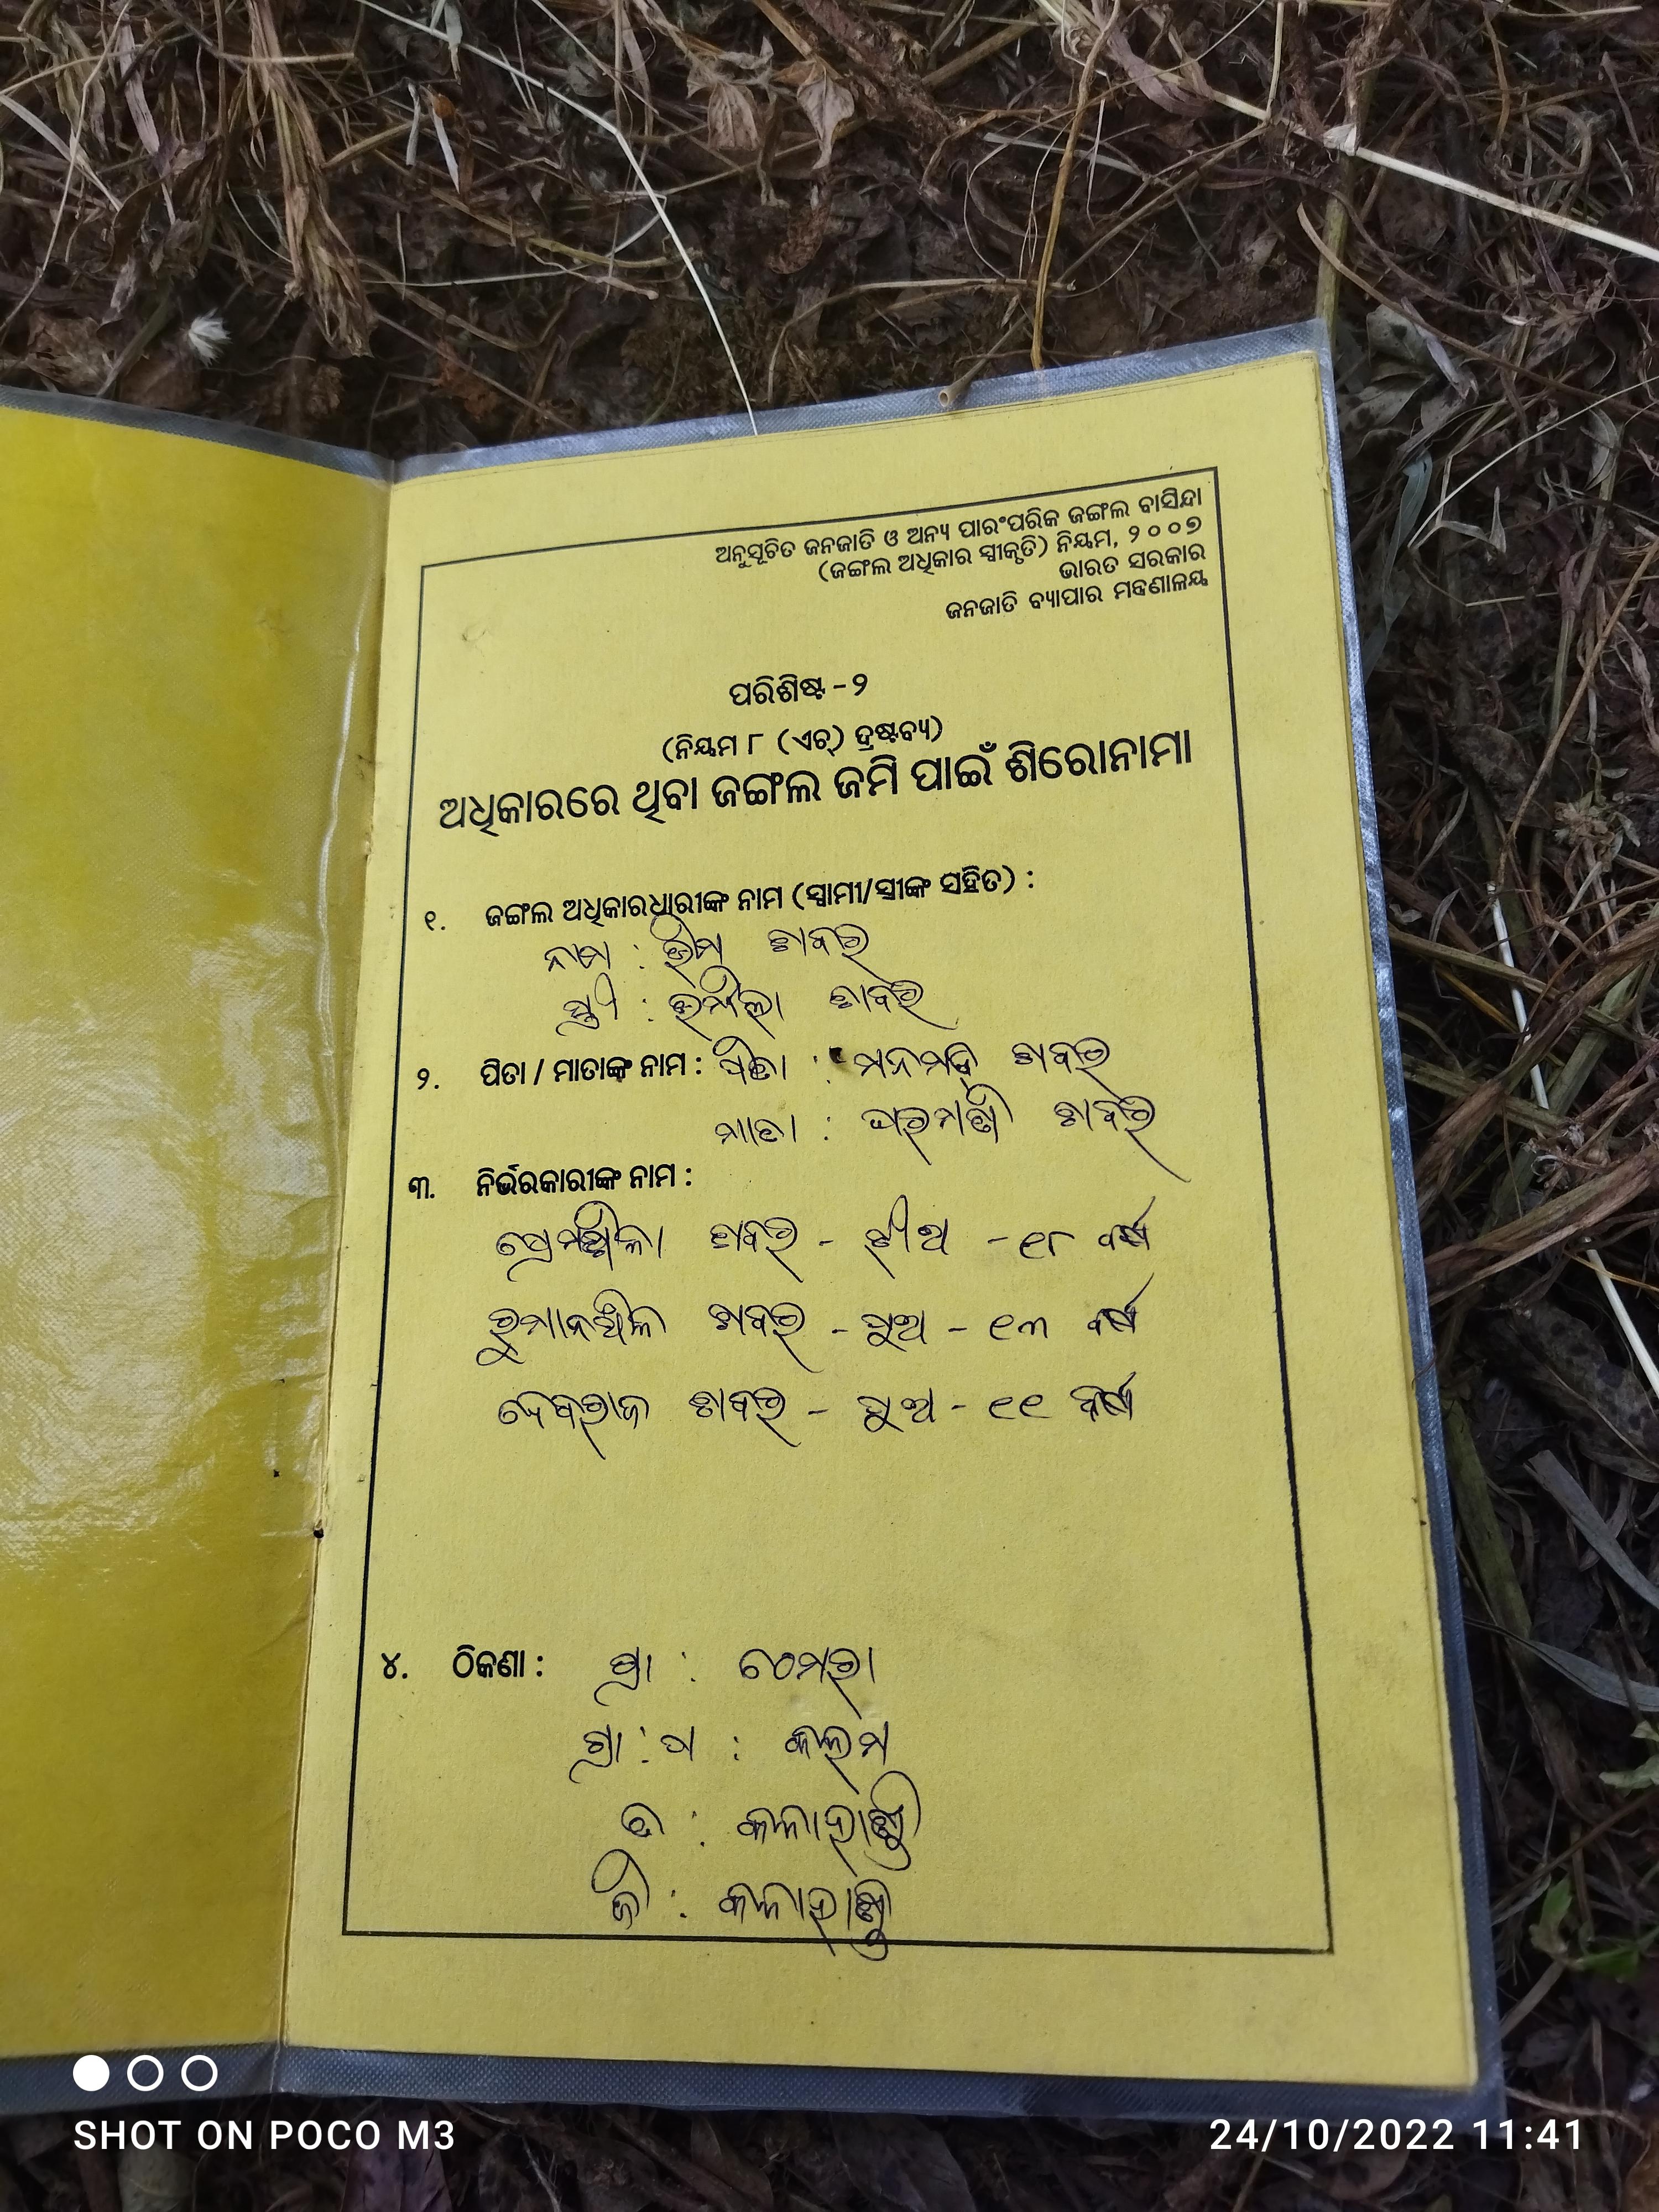 ଅନୁସୂଚିତ ଜନଜାତି ଓ ଅନ୍ୟ ପାରଂପରିକ ଜଙ୍ଗଲ ବାସିନ୍ଦା
(ଜଙ୍ଗଲ ଅଧିକାର ସ୍ୱୀକୃତି) ନିୟମ, ୨୦୦୭
ଭାରତ ସରକାର
ଜନଜାତି ବ୍ୟାପାର ମନ୍ତ୍ରଣାଳୟ
ପରିଶିଷ୍ଟ -୨
(ନିୟମ ୮ (ଏଚ୍) ଦ୍ରଷ୍ଟବ୍ୟ)
ଅଧିକାରରେ ଥିବା ଜଙ୍ଗଲ ଜମି ପାଇଁ ଶିରୋନାମା
୧. ଜଙ୍ଗଲ ଅଧିକାରଧାରୀଙ୍କ ନାମ (ସ୍ୱାମୀ/ସ୍ତ୍ରୀଙ୍କ ସହିତ) :
ନାମ : ଭୀମ ଶବର
ସ୍ତ୍ରୀ : ଶବର
୨. ପିତା / ମାତାଙ୍କ ନାମ : ପିତା : ଶବର
ମାତା : ଶବର
୩. ନିର୍ଭରକାରୀଙ୍କ ନାମ :
ଶବର - ଝୀଅ - ୧୮ ବର୍ଷ
ଶବର - ପୁଅ - ୧୩ ବର୍ଷ
ଦେବରାଜ ଶବର - ପୁଅ - ୧୧ ବର୍ଷ
୪. ଠିକଣା : ଗ୍ରା : ଟେମରା
ଗ୍ରା : ପ : କଲମ
ବ : କଳାହାଣ୍ଡି
ଜି : କଳାହାଣ୍ଡି
SHOT ON POCO M3
24/10/2022 11:41